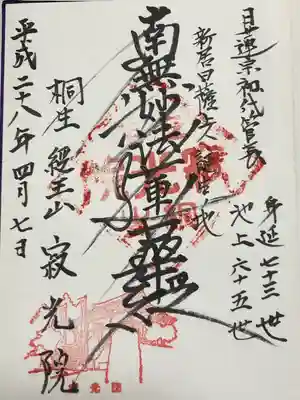 日蓮宗初代管長
身延七十三世
池上六十五世
新居日薩大誕生地
南無妙法蓮華経
桐生 經王山 寂光院
平成二十八年四月七日